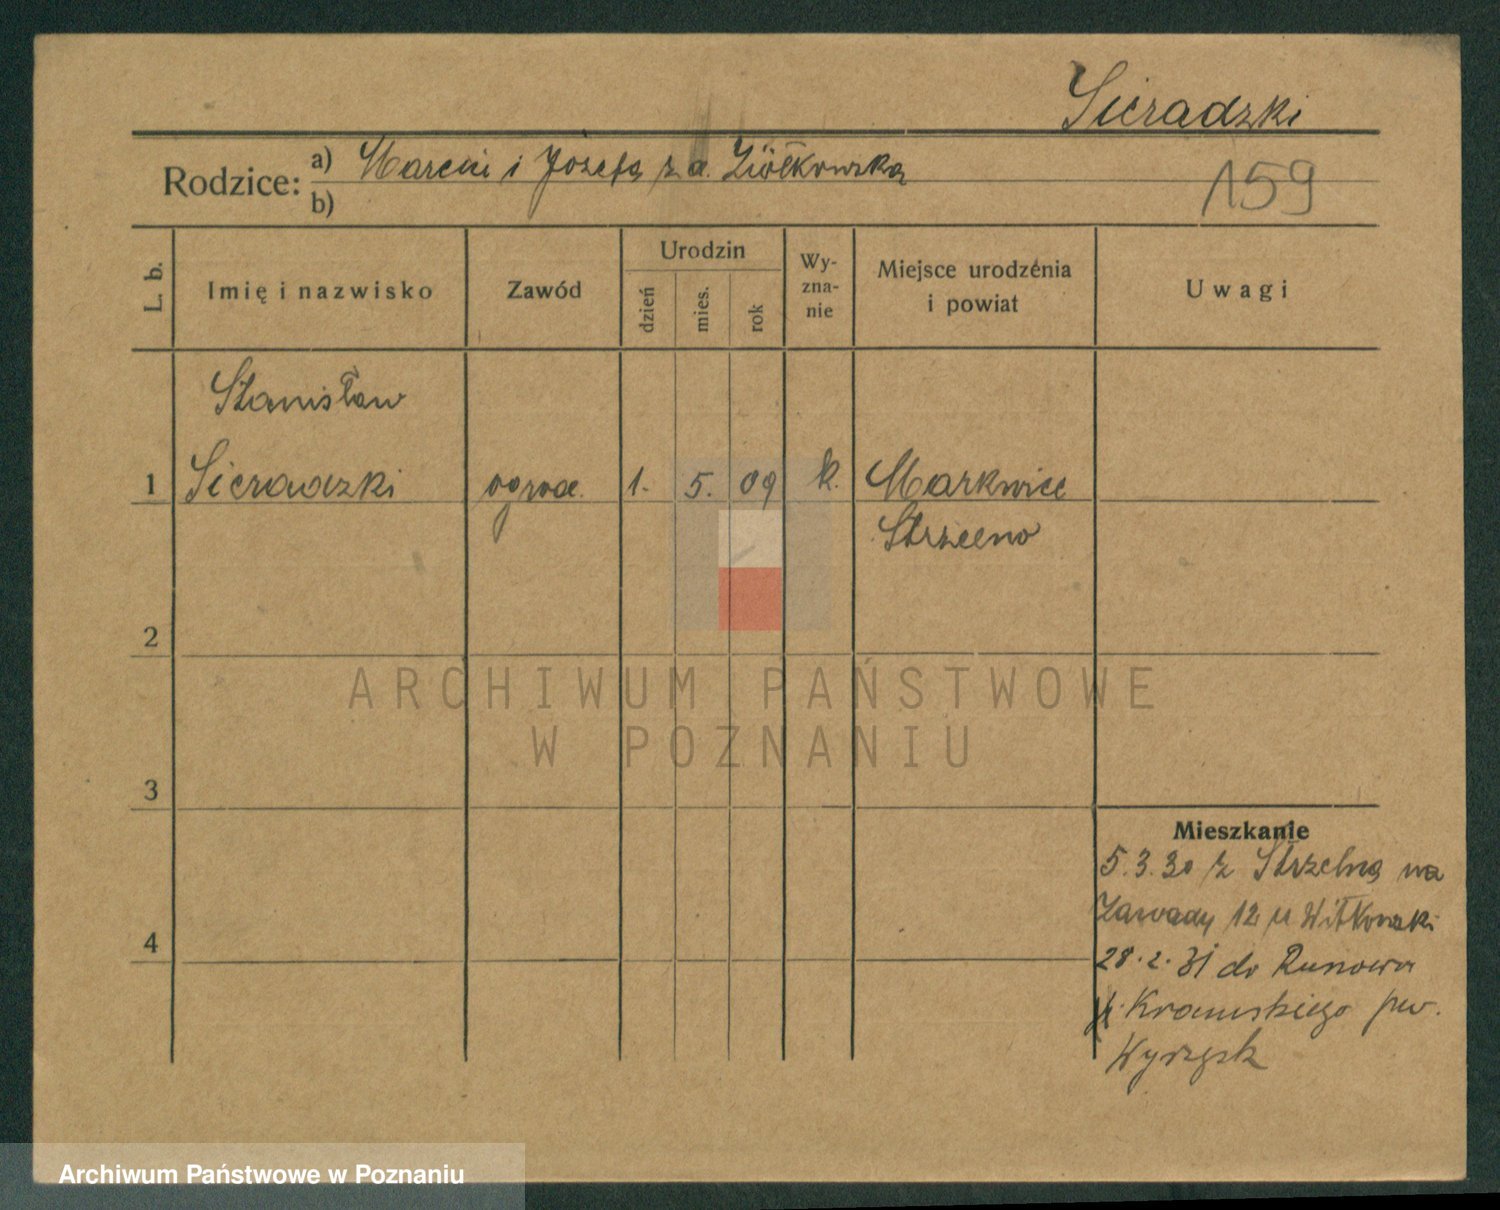 Sieradzki
Rodzice: a) Marcin i Józefa z d. Ziółkowska
b)
159
L. b.
Imię i nazwisko
Zawód
Urodzin
dzień
mies.
rok
Wy-
zna-
nie
Miejsce urodzenia
i powiat
Uwagi
Stanisław
1 Sieradzki ogrod. 1. 5. 09 k. Markowice
Strzelno
2
ARCHIWUM PAŃSTWOWE
W POZNANIU
3
Mieszkanie
5.3.30 z Strzelna na
Zawady 12 u Witkowski
4
28.2.31 do Runowa
Kraińskiego pow.
Wyrzysk
Archiwum Państwowe w Poznaniu